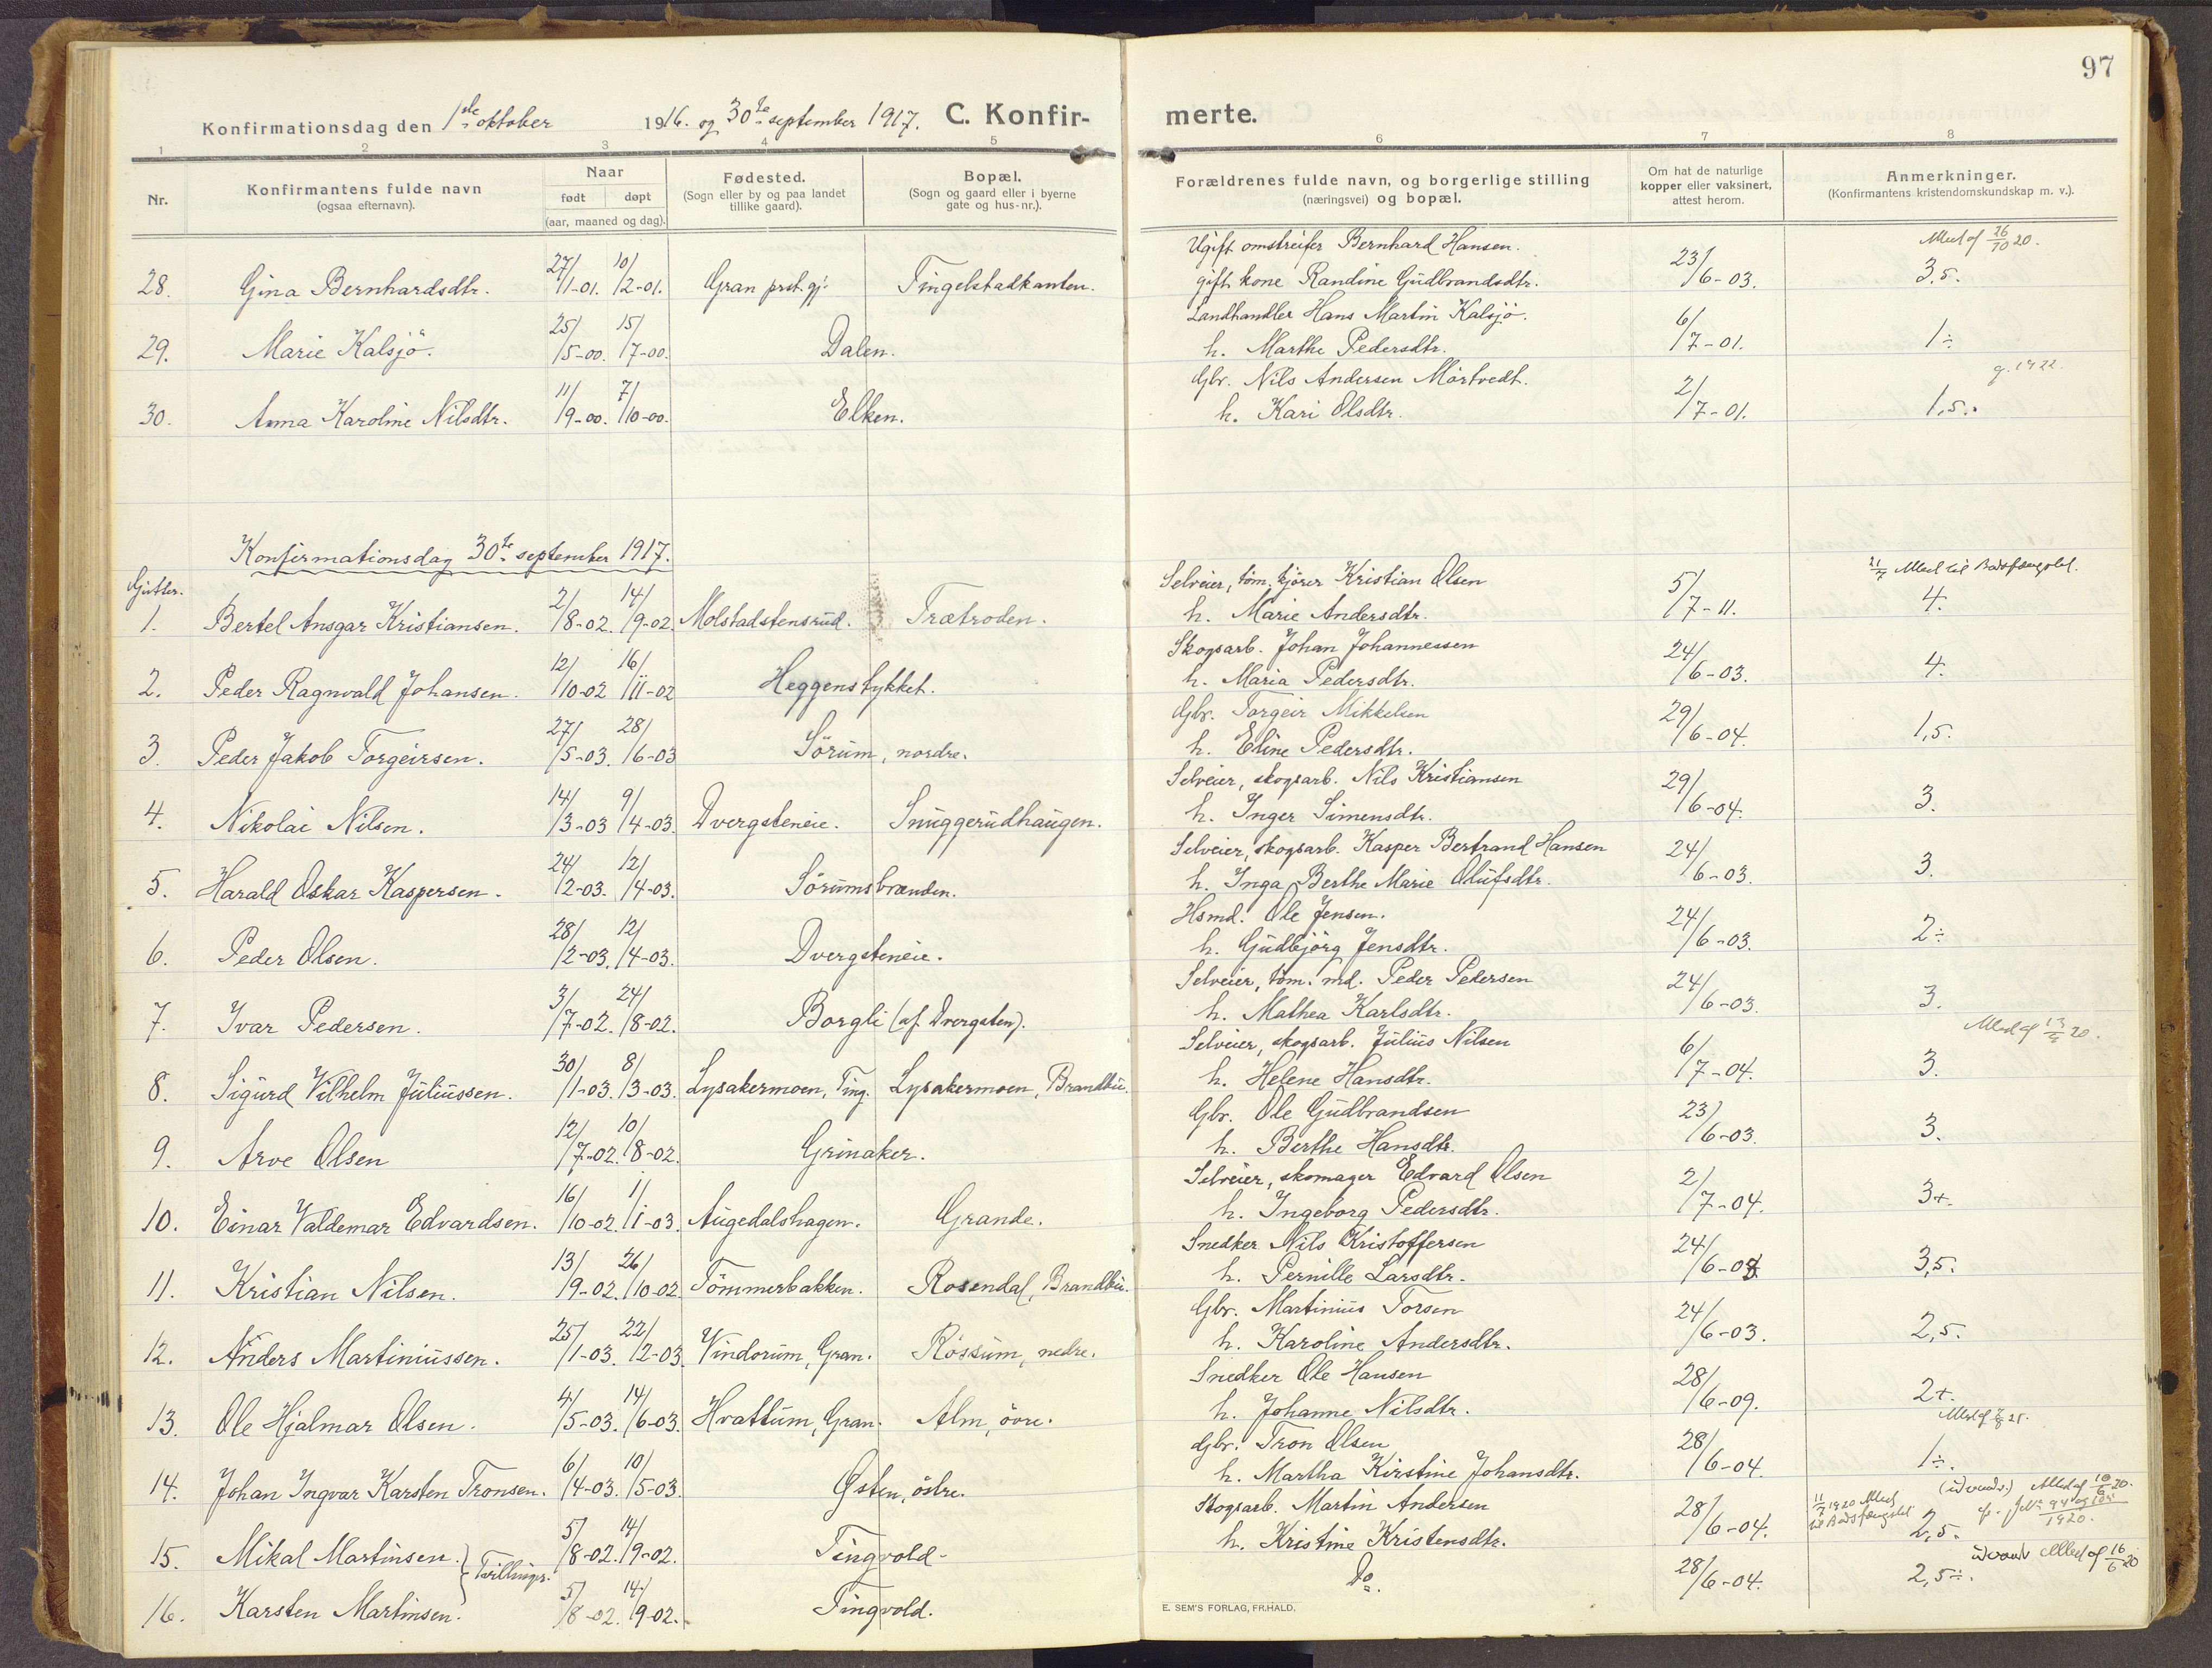 97
Konfirmationsdag den 1ste oktober 1916. og 30te september 1917. C. Konfirmerte.
1 2 3 4 5 6 7 8
Nr. Konfirmantens fulde navn (ogsaa efternavn). Naar født døpt (aar, maaned og dag). Fødested. (Sogn eller by og paa landet tillike gaard). Bopæl. (Sogn og gaard eller i byerne gate og hus-nr.). Forældrenes fulde navn, og borgerlige stilling (næringsvei) og bopæl. Om hat de naturlige kopper eller vaksinert, attest herom. Anmerkninger. (Konfirmantens kristendomskundskap m. v.).
Ugift omstreifer Bernhard Hansen. Med af 26/10 20.
28. Gina Bernhardsdtr. 27/11-01. 10/12-01. Gran prst.gj. Tingelstadkanten. gift kone Randine Gudbrandsdtr. 23/6-03. 3,5.
Landhandler Hans Martin Kalsjö.
29. Marie Kalsjö. 25/5-00. 15/7-00. Dalen. h. Marthe Pedersdtr. 6/7-01. 1÷
Gbr. Nils Andersen Mörtvedt. g. 1922.
30. Anna Karoline Nilsdtr. 11/9-00. 7/10-00. Elken. h. Kari Olsdtr. 2/7-01. 1,5.
Konfirmationsdag 30te september 1917.
Gutter. Selveier, töm.kjörer Kristian Olsen 21/7 Med til Bodsfængslet.
1. Bertel Ansgar Kristiansen. 2/8-02. 14/9-02. Molstadstensrud. Trætroden. h. Marie Andersdtr. 5/7-11. 4.
Skogsarb. Johan Johannessen
2. Peder Ragnvald Johansen. 12/10-02 16/11-02 Heggenstykket. h. Maria Pedersdtr. 24/6-03. 4.
Gbr. Torgeir Mikkelsen
3. Peder Jakob Torgeirsen. 27/5-03. 28/6-03 Sörum, nordre. h. Eline Pedersdtr. 29/6-04. 1,5.
Selveier, skogsarb. Nils Kristiansen
4. Nikolai Nilsen. 14/3-03 9/4-03. Dvergsteneie. Snuggerudhaugen. h. Inger Simensdtr. 29/6-04. 3.
Selveier, skogsarb. Kasper Bertrand Hansen
5. Harald Oskar Kaspersen. 24/2-03. 12/4-03. Sörumsbrænden. h. Inga Berthe Marie Olufsdtr. 24/6-03. 3.
Hsmd. Ole Jensen.
6. Peder Olsen. 28/2-03. 12/4-03. Dvergsteneie. h. Gudbjörg Jensdtr. 24/6-03. 2÷
Selveier, töm.md. Peder Pedersen
7. Ivar Pedersen. 3/7-02. 24/8-02. Borgli (af Dvergsten). h. Mathea Karlsdtr. 24/6-03. 3.
Selveier, skogsarb. Julius Nilsen
8. Sigurd Vilhelm Juliussen. 30/1-03. 8/3-03. Lysakermoen, Ting. Lysakermoen, Brandbu. h. Helene Hansdtr. 6/7-04. 3.
Gbr. Ole Gudbrandsen
9. Arve Olsen 12/7-02. 10/8-02. Grinaker. h. Berthe Hansdtr. 23/6-03. 3.
Selveier, skomager Edvard Olsen
10. Einar Valdemar Edvardsen. 16/10-02. 1/1-03. Augedalshagen. Grande. h. Ingeborg Pedersdtr. 2/7-04. 3+
Snedker Nils Kristoffersen
11. Kristian Nilsen. 13/9-02. 26/10-02. Tömmerbakken. Rosendal, Brandbu. h. Pernille Larsdtr. 24/6-03. 3,5.
Gbr. Martinius Torsen
12. Anders Martiniussen. 25/1-03. 22/2-03. Vindorum, Gran. Rössum, nedre. h. Karoline Andersdtr. 24/6-03. 2,5.
Snedker Ole Hansen
13. Ole Hjalmar Olsen. 4/5-03. 14/6-03. Hvattum, Gran. Alm, övre. h. Johanne Nilsdtr. 28/6-09. 2+.
Gbr. Tron Olsen
14. Johan Ingvar Karsten Tronsen. 6/4-03. 10/5-03. Østen, östre. h. Martha Kirstine Johansdtr. 28/6-04. 1÷.
Skogsarb. Martin Andersen
15. Mikal Martinsen. 5/8-02. 14/9-02. Tingvold. h. Kristine Kristensdtr. 28/6-04. 11/7 1920 Med til Bodsfængslet 2,5.
Tvillinger.
16. Karsten Martinsen. 5/8-02. 14/9-02. Tingvold. Do. 28/6-04. 2,5÷.
E. SEM'S FORLAG, FR.HALD.